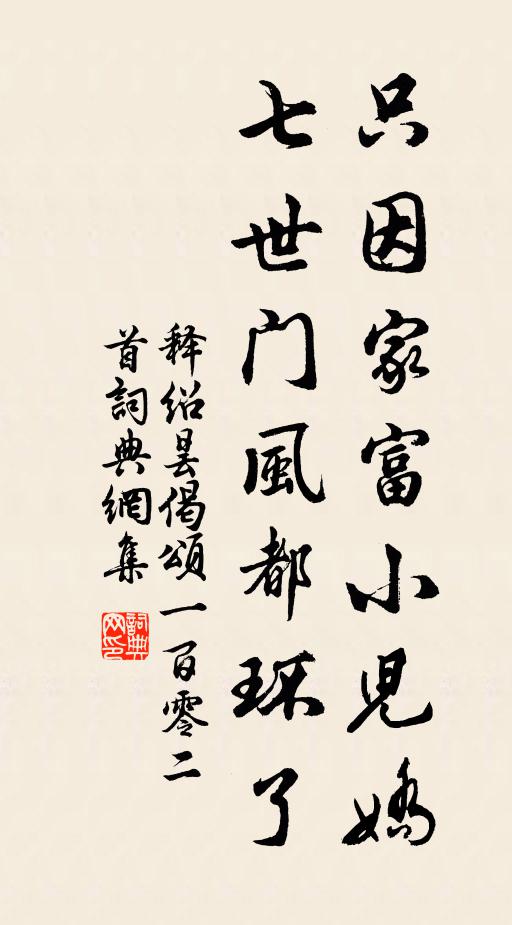 只因家富小児嬌
七世门風都坏了
释绍昙偈頌一百零二
首詞典網集
詞典网印